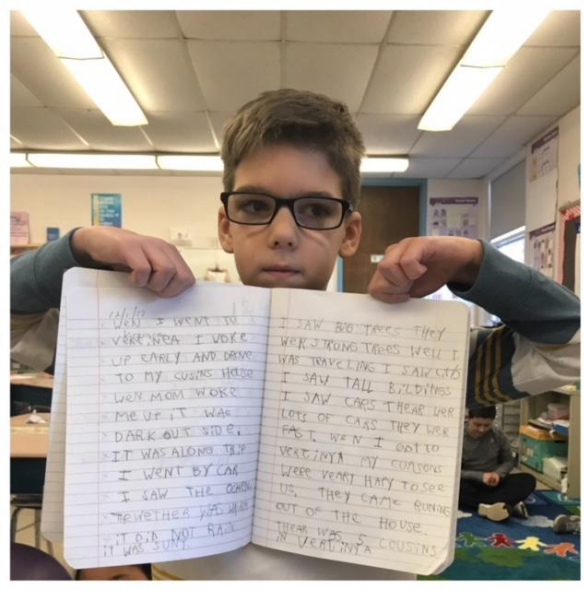 WEN I WENT TO
VERGINEA I WOKE
UP EARLY AND DROVE
TO MY CUSINS HOUSE
WEN MOM WOKE
ME UP IT WAS
DARK OUT SIDE.
IT WAS ALONG TRIP
I WENT BY CAR
I SAW THE
THEWETHER WAS
IT DID NOT RAIN
IT WAS SUNY.
I SAW BIG TREES THEY
WER STRONG TREES WELL I
WAS TRAVELING I SAW
I SAW TALL BILDINGS
I SAW CARS THEAR WER
LOTS OF CARS THEY WER
FAST. WEN I GOT TO
VERTINYA MY COUSONS
WERE VEARY HAPY TO SEE
US. THEY CAME RUNING
OUT OF THE HOUSE.
THEAR WAS 5 COUSINS
IN VERTINYA